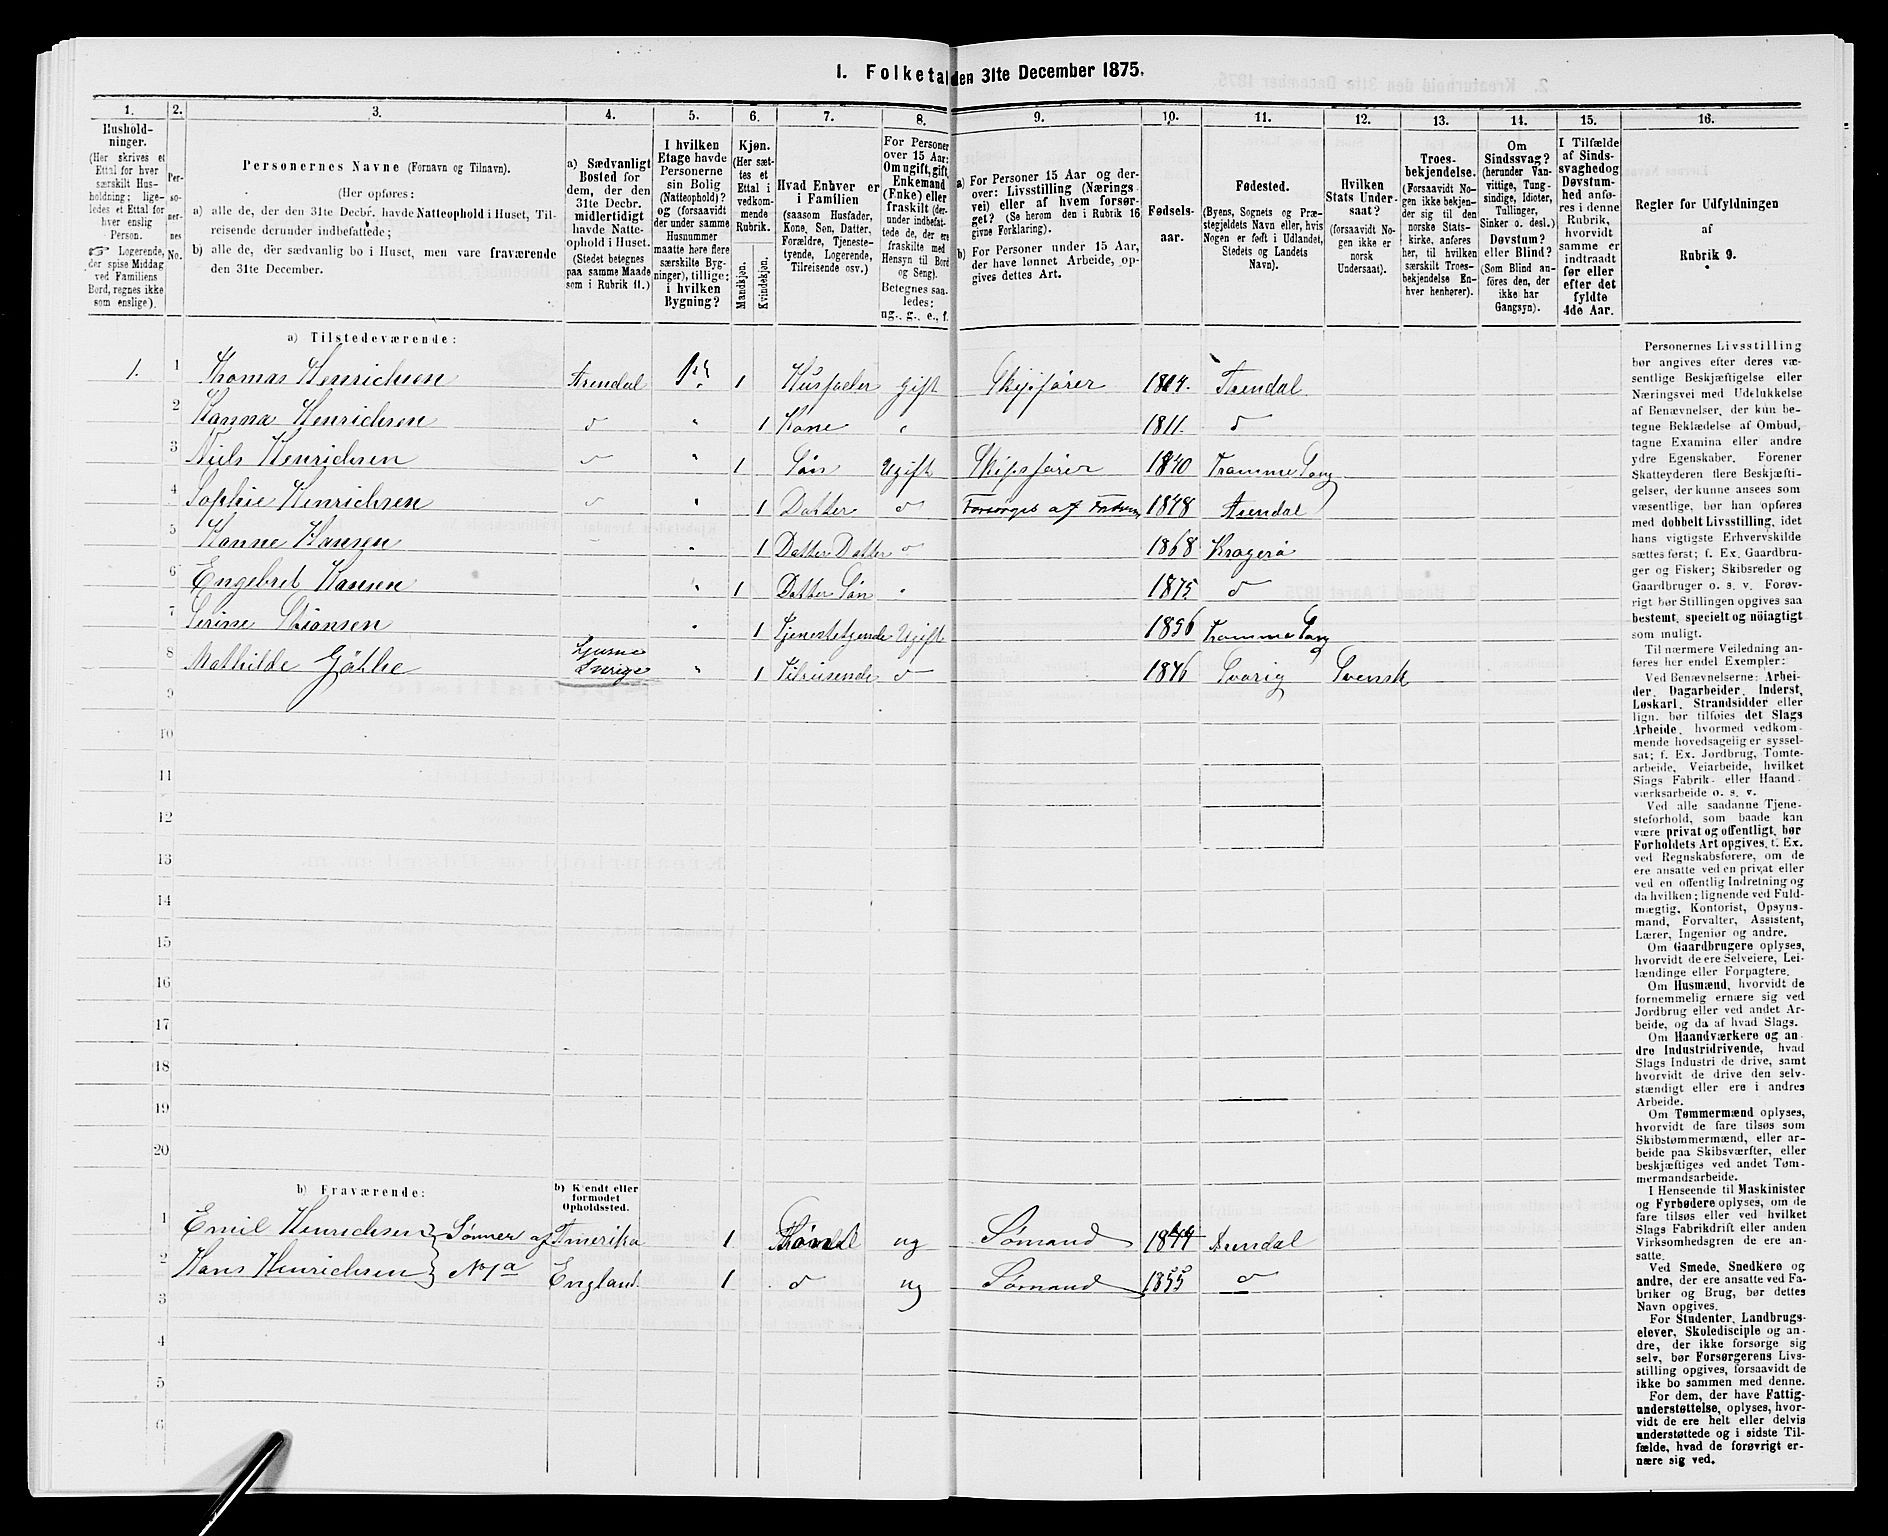 1. Folketal den 31te December 1875.
1. 2. 3. 4. 5. 6. 7. 8. 9. 10. 11. 12. 13. 14. 15. 16.
Hushold-
ninger.
(Her skrives et
Ettal for hver
særskilt Hus-
holdning; lige-
ledes et Ettal for
hver enslig
Person.
☞ Logerende,
der spise Middag
ved Familiens
Bord, regnes ikke
som enslige).
Per-
so-
ner-
nes
No.
Personernes Navne (Fornavn og Tilnavn).
(Her opføres:
a) alle de, der den 31te Decbr. havde Natteophold i Huset, Til-
reisende derunder indbefattede;
b) alle de, der sædvanlig bo i Huset, men vare fraværende
den 31te December.
a) Sædvanligt
Bosted for
dem, der den
31te Decbr.
midlertidigt
havde Natte-
ophold i Huset.
(Stedet betegnes
paa samme Maade
som i Rubrik 11.)
I hvilken
Etage havde
Personerne
sin Bolig
(Natteophold)?
og (forsaavidt
der under samme
Husnummer
maatte høre flere
særskilte Byg-
ninger), tillige:
i hvilken
Bygning?
Kjøn.
(Her sæt-
tes et
Ettal i
vedkom-
mende
Rubrik.
Mandkjøn.
Kvindekjøn.
Hvad Enhver er
i Familien
(saasom Husfader,
Kone, Søn, Datter,
Forældre, Tjeneste-
tyende, Logerende,
Tilreisende osv.)
For Personer
over 15 Aar:
Om ugift, gift,
Enkemand
(Enke) eller
fraskilt (der-
under indbefat-
tede de, der ere
fraskilte med
Hensyn til Bord
og Seng).
Betegnes saa-
ledes:
ug., g., e., f.
a) For Personer 15 Aar og der-
over: Livsstilling (Nærings-
vei) eller af hvem forsør-
get? (Se herom den i Rubrik 16
givne Forklaring).
b) For Personer under 15 Aar,
der have lønnet Arbeide, op-
gives dettes Art.
Fødsels-
aar.
Fødested.
(Byens, Sognets og Præ-
stegjeldets Navn eller, hvis
Nogen er født i Udlandet,
Stedets og Landets
Navn).
Hvilken
Stats Under-
saat?
(forsaavidt No-
gen ikke er
norsk
Undersaat).
Troes-
bekjendelse.
(Forsaavidt No-
gen ikke bekjen-
der sig til den
norske Stats-
kirke, anføres
her, til hvilken
særskilt Troes-
bekjendelse En-
hver henhører).
Om
Sindssvag?
(herunder Van-
vittige, Tung-
sindige, Idioter,
Tullinger,
Sinker o. desl.)
Døvstum?
eller Blind?
(Som Blind an-
føres den, der
ikke har
Gangsyn).
I Tilfælde
af Sinds-
svaghed og
Døvstum-
hed anfø-
res i denne
Rubrik,
hvorvidt
samme er
indtraadt
før eller
efter det
fyldte
4de Aar.
Regler for Udfyldningen
af
Rubrik 9.
a) Tilstedeværende:
1. 1 Thomas Henrichsen Arendal 1 Husfader gift Skipsfører 1814. Arendal
2 Hanna Henrichsen d " 1 Kone " 1811. d
3 Niels Henrichsen d " 1 Søn Ugift Skipsfører 1840 Tromme Sogn
4 Sophie Henrichsen d " 1 Datter d Forsørges af Faderen 1848 Arendal
5 Hanne Hansen " 1 Datter Datter d 1868 Kragerø
6 Engebret Hansen " 1 Datter Søn " 1875 d
7 Sirine " 1 Tjenestetyende Ugift 1856 Tromme Sogn
8 Mathilde Göthe
Sverige " 1 Tilreisende d 1846 Sverig Svensk
9
10
11
12
13
14
15
16
17
18
19
20
b) Fraværende:
b) Kjendt eller
formodet
Opholdssted.
1 Emil Henrichsen } Sønner af Amerika 1 ug Sømand 1844 Arendal
2 Hans Henrichsen } No 1a England. 1 d ug Sømand 1855 d
3
4
5
6
Personernes Livsstilling
bør angives efter deres væ-
sentlige Beskjæftigelse eller
Næringsvei med Udelukkelse
af Benævnelser, der kun be-
tegne Beklædelse af Ombud,
tagne Examina eller andre
ydre Egenskaber. Forener
Skatteyderen flere Beskjæfti-
gelser, der kunne ansees som
væsentlige, bør han opføres
med dobbelt Livsstilling, idet
hans vigtigste Erhvervskilde
sættes først; f. Ex. Gaardbru-
ger og Fisker; Skibsreder og
Gaardbruger o. s. v. Forøv-
rigt bør Stillingen opgives saa
bestemt, specielt og nøiagtigt
som muligt.
Til nærmere Veiledning an-
føres her endel Exempler:
Ved Benævnelserne: Arbei-
der, Dagarbeider, Inderst,
Løskarl, Strandsidder eller
lign. bør tilføies det Slags
Arbeide, hvormed vedkom-
mende hovedsagelig er syssel-
sat; f. Ex. Jordbrug, Tomte-
arbeide, Veiarbeide, hvilket
Slags Fabrik- eller Haand-
værksarbeide o. s. v.
Ved alle saadanne Tjene-
steforhold, som baade kan
være privat og offentligt, bør
Forholdets Art opgives, f. Ex.
ved Regnskabsførere, om de
ere ansatte ved en privat eller
ved en offentlig Indretning og
da hvilken; lignende ved Fuld-
mægtig, Kontorist, Opsyns-
mand, Forvalter, Assistent,
Lærer, Ingeniør og andre.
Om Gaardbrugere oplyses,
hvorvidt de ere Selveiere, Lei-
lændinge eller Forpagtere.
Om Husmænd, hvorvidt de
fornemmelig ernære sig ved
Jordbrug eller ved andet Ar-
beide, og da af hvad Slags.
Om Haandværkere og an-
dre Industridrivende, hvad
Slags Industri de drive, samt
hvorvidt de drive den selv-
stændigt eller ere i andres
Arbeide.
Om Tømmermænd oplyses,
hvorvidt de fare tilsøs som
Skibstømmermænd, eller ar-
beide paa Skibsværfter, eller
beskjæftiges ved andet Tøm-
mermandsarbeide.
I Henseende til Maskinister
og Fyrbødere oplyses, om de
fare tilsøs eller ved hvilket
Slags Fabrikdrift eller anden
Virksomhedsgren de ere an-
satte.
Ved Smede, Snedkere og
andre, der ere ansatte ved Fa-
briker og Brug, bør dettes
Navn opgives.
For Studenter, Landbrugs-
elever, Skoledisciple og an-
dre, der ikke forsørge sig
selv, bør Forsørgerens Livs-
stilling opgives, forsaavidt de
ikke bo sammen med denne.
For dem, der have Fattig-
understøttelse, oplyses, hvor-
vidt de ere helt eller delvis
understøttede og i sidste Til-
fælde, hvad de forøvrigt er-
nære sig ved.